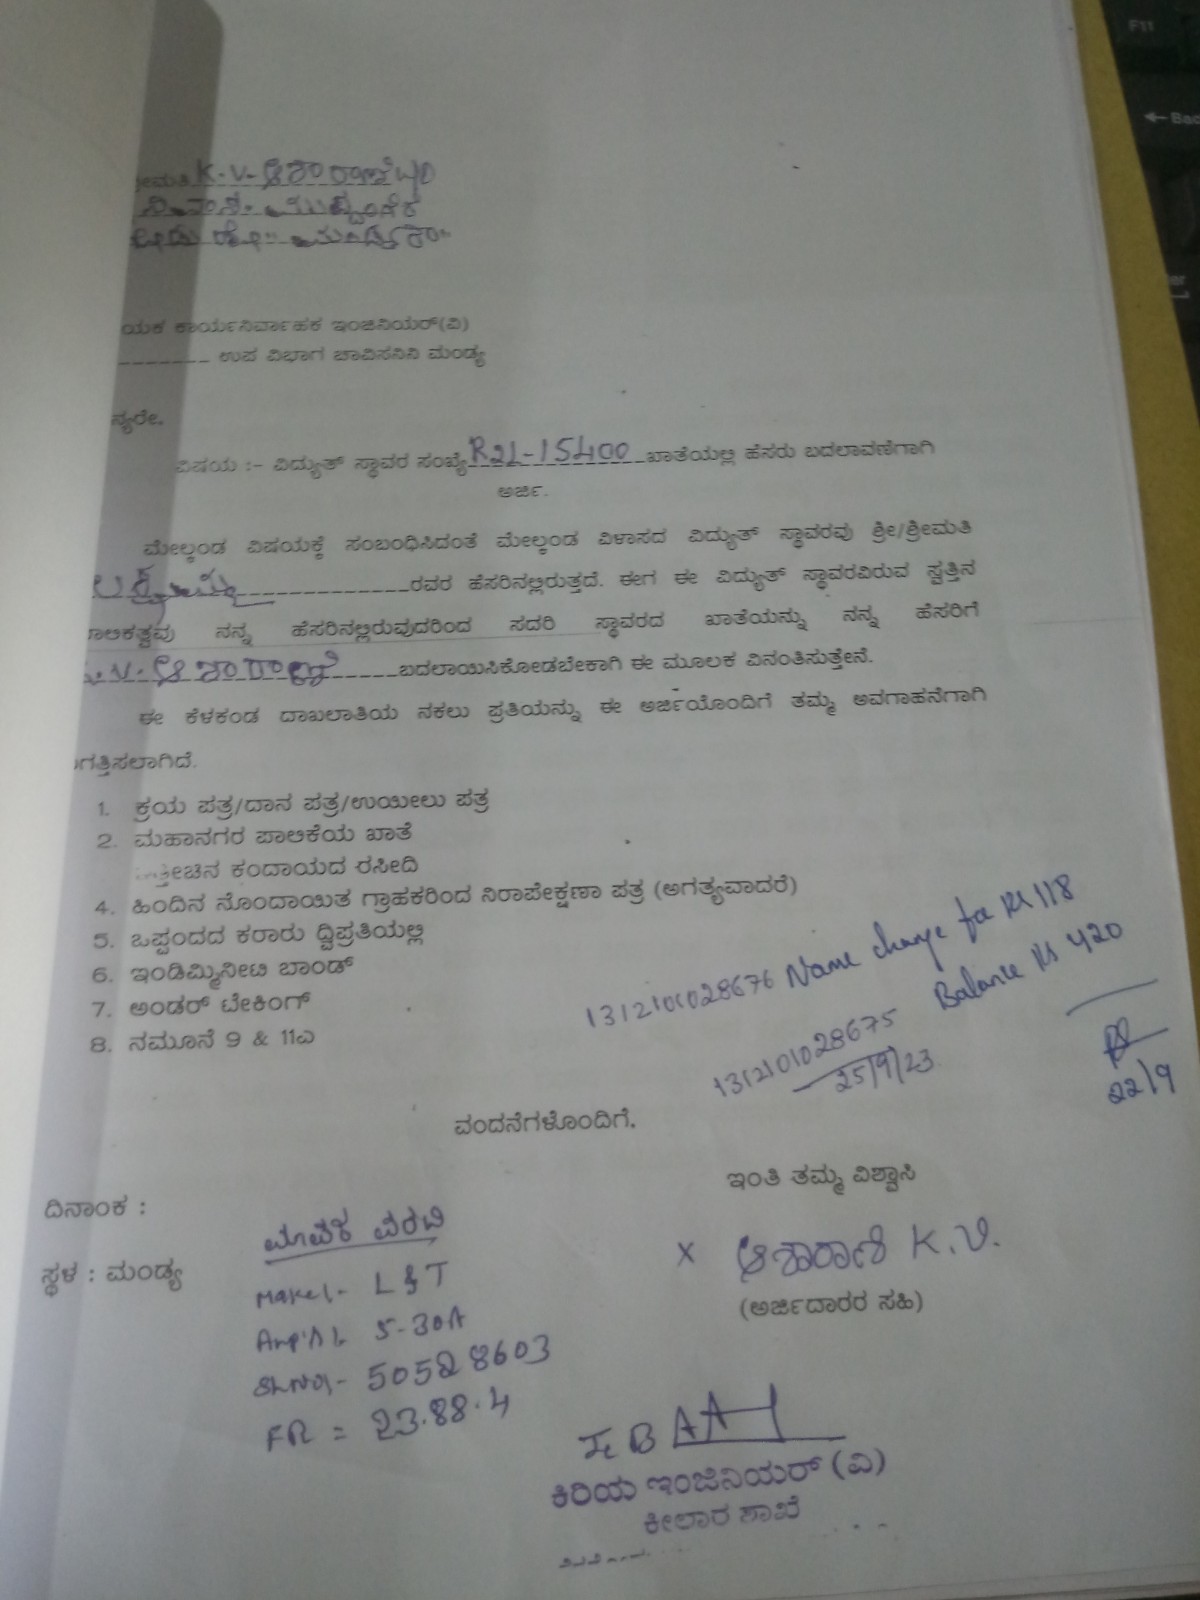 F11
← Bac
K.V. ಆಶಾರಾಣಿ
ಯಕ ಕಾರ್ಯನಿರ್ವಾಹಕ ಇಂಜಿನಿಯರ್(ವಿ)
_______ ಉಪ ವಿಭಾಗ ಚಾವಿಸನಿನಿ ಮಂಡ್ಯ
ನ್ಯರೇ.
ವಿಷಯ :- ವಿದ್ಯುತ್ ಸ್ಥಾವರ ಸಂಖ್ಯೆ R2L-15400 ಖಾತೆಯಲ್ಲಿ ಹೆಸರು ಬದಲಾವಣೆಗಾಗಿ
ಅರ್ಜಿ.
ಮೇಲ್ಕಂಡ ವಿಷಯಕ್ಕೆ ಸಂಬಂಧಿಸಿದಂತೆ ಮೇಲ್ಕಂಡ ವಿಳಾಸದ ವಿದ್ಯುತ್ ಸ್ಥಾವರವು ಶ್ರೀ/ಶ್ರೀಮತಿ
ಲಕ್ಷ್ಮಮ್ಮ ರವರ ಹೆಸರಿನಲ್ಲಿರುತ್ತದೆ. ಈಗ ಈ ವಿದ್ಯುತ್ ಸ್ಥಾವರವಿರುವ ಸ್ವತ್ತಿನ
ಾಲಿಕತ್ವವು ನನ್ನ ಹೆಸರಿನಲ್ಲಿರುವುದರಿಂದ ಸದರಿ ಸ್ಥಾವರದ ಖಾತೆಯನ್ನು ನನ್ನ ಹೆಸರಿಗೆ
.V. ಆಶಾರಾಣಿ ಬದಲಾಯಿಸಿಕೋಡಬೇಕಾಗಿ ಈ ಮೂಲಕ ವಿನಂತಿಸುತ್ತೇನೆ.
ಈ ಕೆಳಕಂಡ ದಾಖಲಾತಿಯ ನಕಲು ಪ್ರತಿಯನ್ನು ಈ ಅರ್ಜಿಯೊಂದಿಗೆ ತಮ್ಮ ಅವಗಾಹನೆಗಾಗಿ
ಗತ್ತಿಸಲಾಗಿದೆ.
1. ಕ್ರಯ ಪತ್ರ/ದಾನ ಪತ್ರ/ಉಯೀಲು ಪತ್ರ
2. ಮಹಾನಗರ ಪಾಲಿಕೆಯ ಖಾತೆ
ತ್ತೀಚಿನ ಕಂದಾಯದ ರಸೀದಿ
4. ಹಿಂದಿನ ನೊಂದಾಯಿತ ಗ್ರಾಹಕರಿಂದ ನಿರಾಪೇಕ್ಷಣಾ ಪತ್ರ (ಅಗತ್ಯವಾದರೆ)
5. ಒಪ್ಪಂದದ ಕರಾರು ದ್ವಿಪ್ರತಿಯಲ್ಲಿ
6. ಇಂಡಿಮ್ಮಿನೀಟಿ ಬಾಂಡ್
7. ಅಂಡರ್ ಟೇಕಿಂಗ್
8. ನಮೂನೆ 9 & 11ಎ
1312101028676 Name change fee Rs 118
1312101028675 Balance Rs 420
25/9/23
22/9
ವಂದನೆಗಳೊಂದಿಗೆ.
ಇಂತಿ ತಮ್ಮ ವಿಶ್ವಾಸಿ
ದಿನಾಂಕ :
ಸ್ಥಳ : ಮಂಡ್ಯ
ಮಾಪಕ ವರದಿ
Make:- L&T
5-30A
Sl.No:- 50528603
FR = 23.88.4
x ಆಶಾರಾಣಿ K.V.
(ಅರ್ಜಿದಾರರ ಸಹಿ)
ಕಿರಿಯ ಇಂಜಿನಿಯರ್ (ವಿ)
ಕೀಲಾರ ಶಾಖೆ